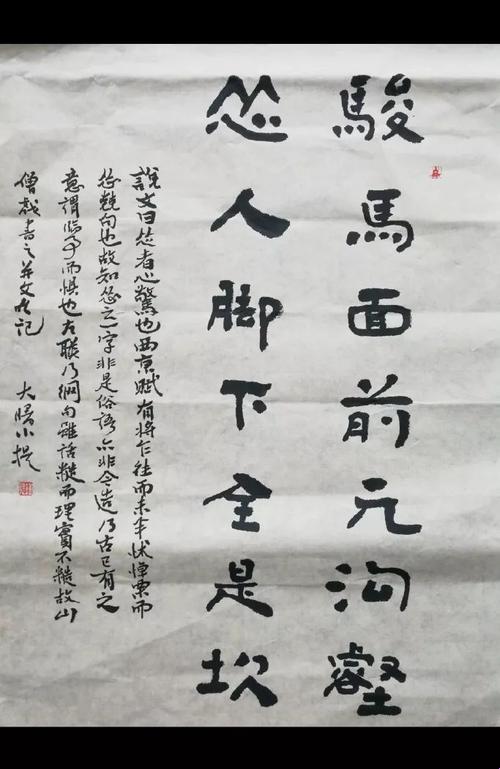 駿馬面前元沟壑
怂人脚下全是坎
說文曰怂者心驚也西京賦有將乍往而未半怵悼栗而
怂兢句也故知怂之一字非是俗語亦非今造乃古已有之
意謂臨事而惧也右聯乃網句雖話糙而理實不糙故山
僧戲書之并文以記
小提